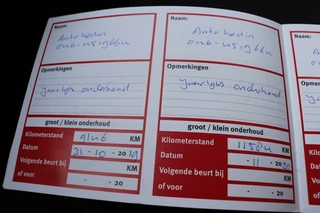 Naam:
Auto hedin
Opmerkingen
Jaarlijks onderhoud
groot / klein onderhoud
Kilometerstand KM
Datum 31-10-2019
Volgende beurt bij KM
of voor - - 20
Naam:
Auto hedin
Opmerkingen
Jaarlijks onderhoud
groot / klein onderhoud
Kilometerstand KM
Datum -11-20
Volgende beurt bij KM
of voor - - 20
Naam:
Opmerkingen
Kilome
Datum
Volge
of voo